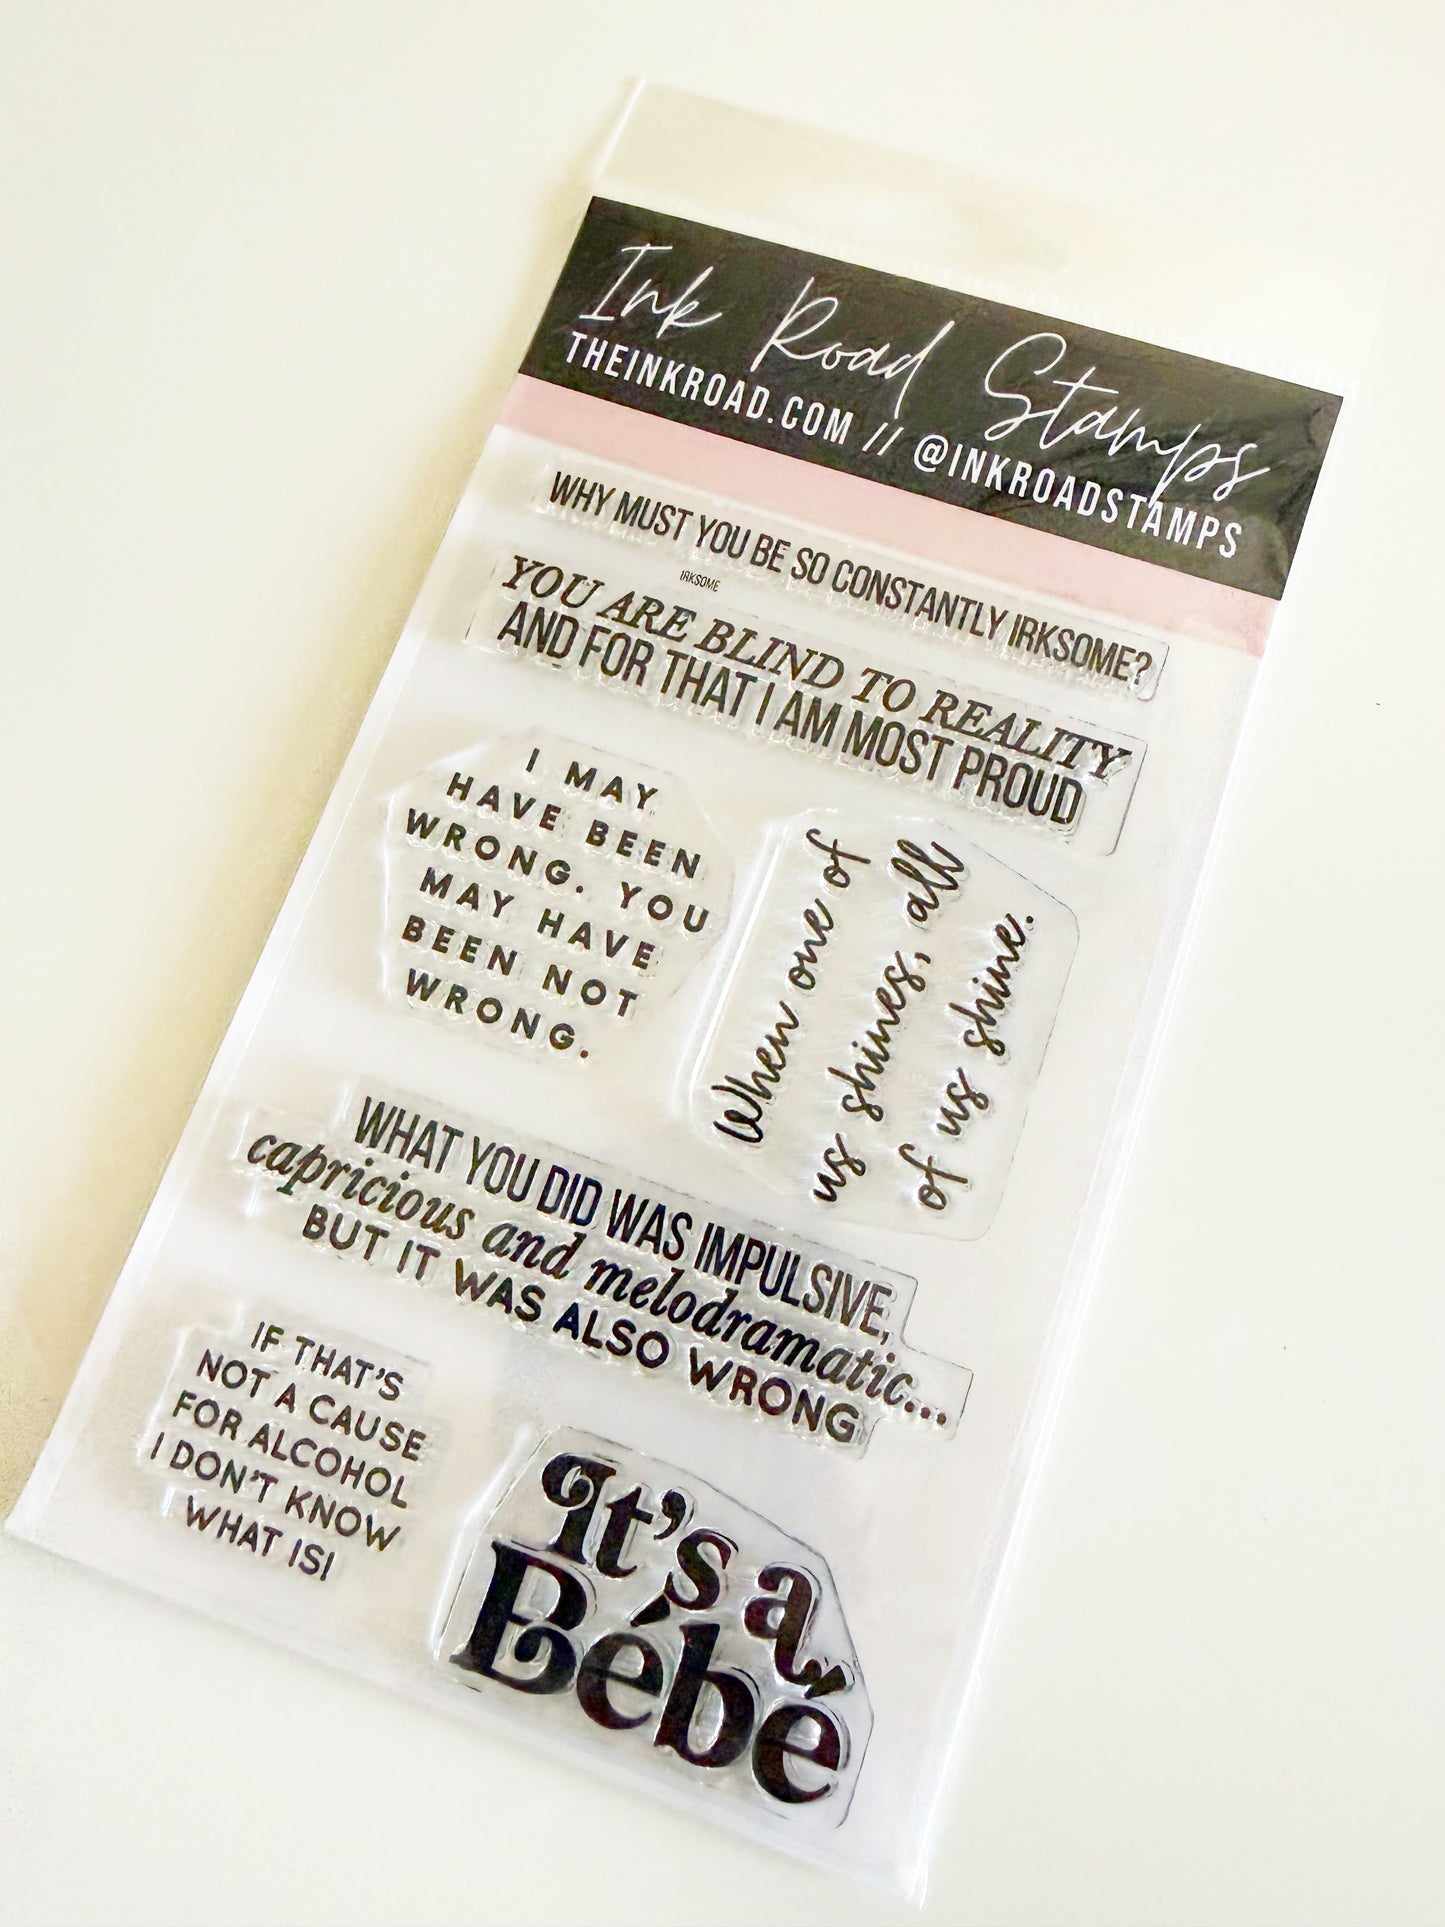 Ink Road Stamps
THEINKROAD.COM // @INKROADSTAMPS
WHY MUST YOU BE SO CONSTANTLY IRKSOME?
IRKSOME
YOU ARE BLIND TO REALITY
AND FOR THAT I AM MOST PROUD
I MAY
HAVE BEEN
WRONG. YOU
MAY HAVE
BEEN NOT
WRONG.
When one of
us shines, all
of us shine.
WHAT YOU DID WAS IMPULSIVE,
capricious and melodramatic...
BUT IT WAS ALSO WRONG
IF THAT'S
NOT A CAUSE
FOR ALCOHOL
I DON'T KNOW
WHAT IS!
It's a
Bébé